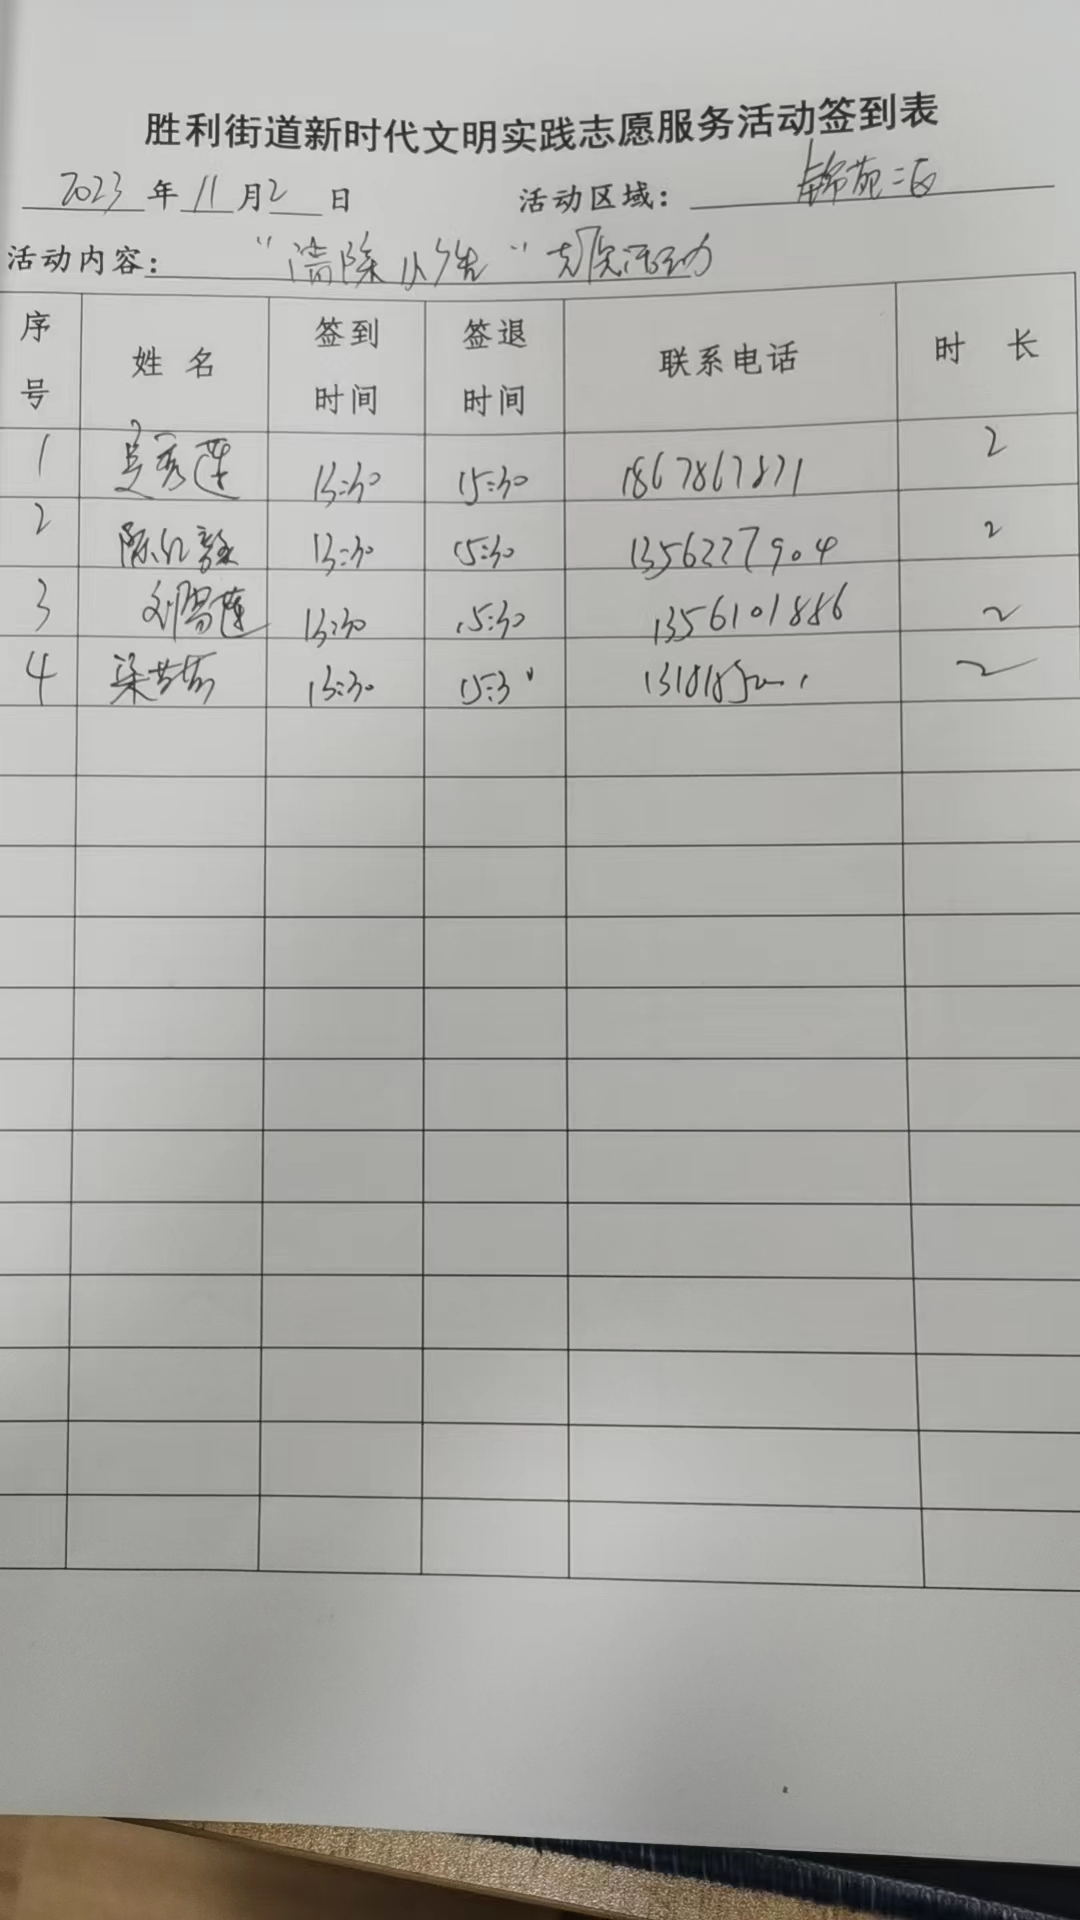 胜利街道新时代文明实践志愿服务活动签到表
2023年11月2日 活动区域：锦苑二区
活动内容："清除小广告"志愿活动
序号 姓名 签到时间 签退时间 联系电话 时长
1 吴秀莲 13:30 15:30 1867867871 2
2 陈红 13:30 15:30 13562277904 2
3 刘 莲 13:30 15:30 13561018886 2
4 梁 13:30 15:30 2